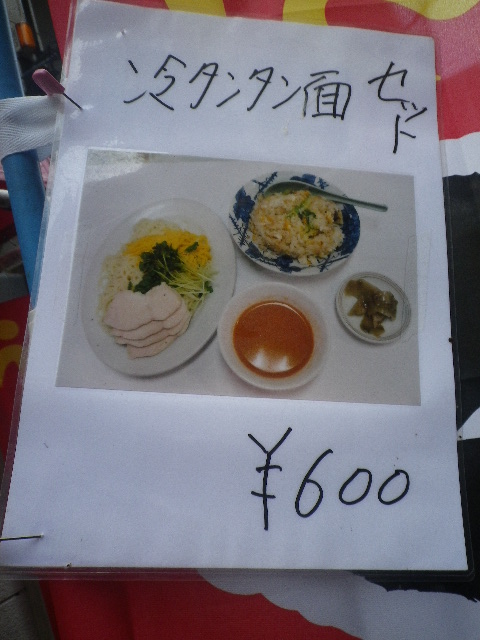 冷タンタン面 セット
¥600